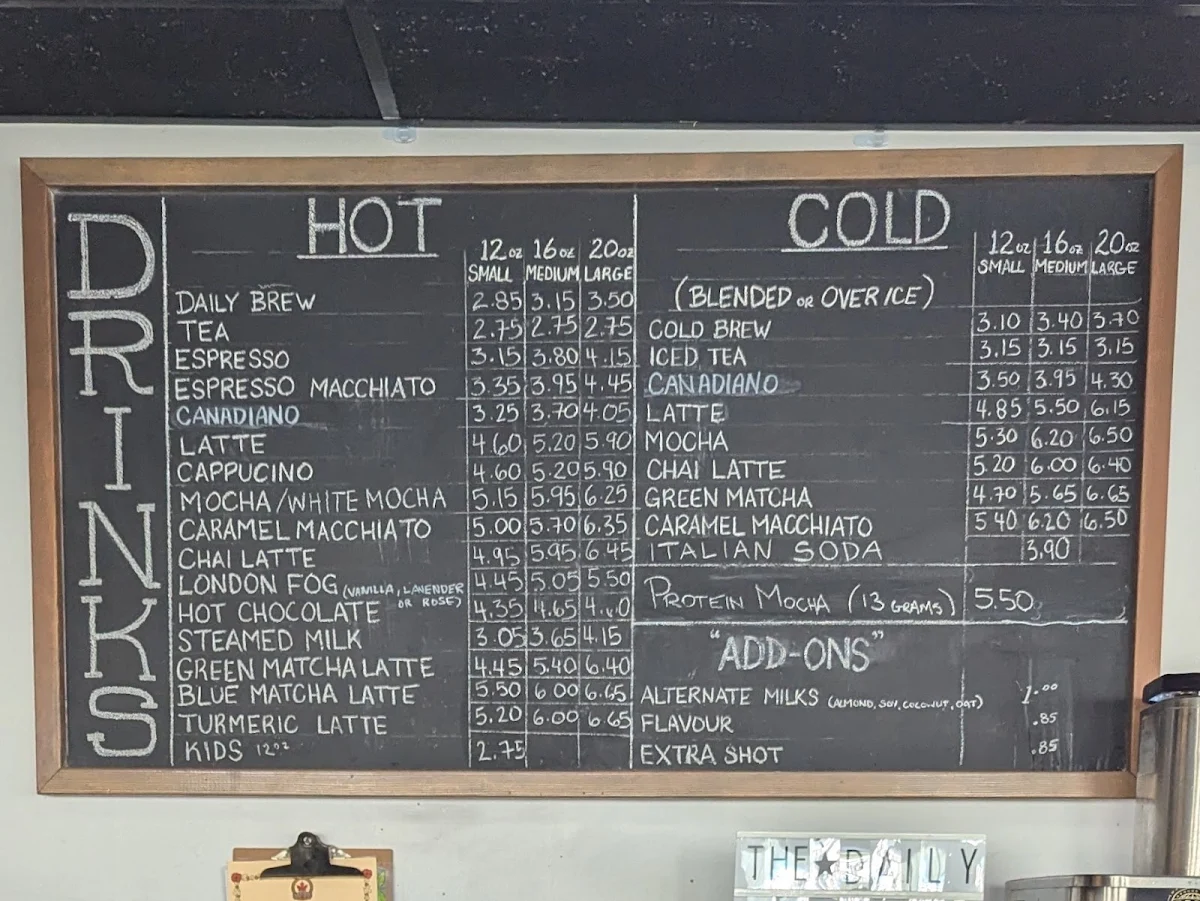 DRINKS
HOT
12oz 16oz 20oz
SMALL MEDIUM LARGE
DAILY BREW 2.85 3.15 3.50
TEA 2.75 2.75 2.75
ESPRESSO 3.15 3.80 4.15
ESPRESSO MACCHIATO 3.35 3.95 4.45
CANADIANO 3.25 3.70 4.05
LATTE 4.60 5.20 5.90
CAPPUCINO 4.60 5.20 5.90
MOCHA/WHITE MOCHA 5.15 5.95 6.25
CARAMEL MACCHIATO 5.00 5.70 6.35
CHAI LATTE 4.95 5.95 6.45
LONDON FOG (VANILLA, LAVENDER 4.45 5.05 5.50
OR ROSE)
HOT CHOCOLATE 4.35 4.65
STEAMED MILK 3.05 3.65 4.15
GREEN MATCHA LATTE 4.45 5.40 6.40
BLUE MATCHA LATTE 5.50 6.00 6.65
TURMERIC LATTE 5.20 6.00 6.65
KIDS 12oz 2.75
COLD
12oz 16oz 20oz
SMALL MEDIUM LARGE
(BLENDED OR OVER ICE)
COLD BREW 3.10 3.40 3.70
ICED TEA 3.15 3.15 3.15
CANADIANO 3.50 3.95 4.30
LATTE 4.85 5.50 6.15
MOCHA 5.30 6.20 6.50
CHAI LATTE 5.20 6.00 6.40
GREEN MATCHA 4.70 5.65 6.65
CARAMEL MACCHIATO 5.40 6.20 6.50
ITALIAN SODA 3.90
PROTEIN MOCHA (13 GRAMS) 5.50
"ADD-ONS"
ALTERNATE MILKS (ALMOND, SOY, COCONUT, OAT) 1.00
FLAVOUR .85
EXTRA SHOT .85
THE★DAILY